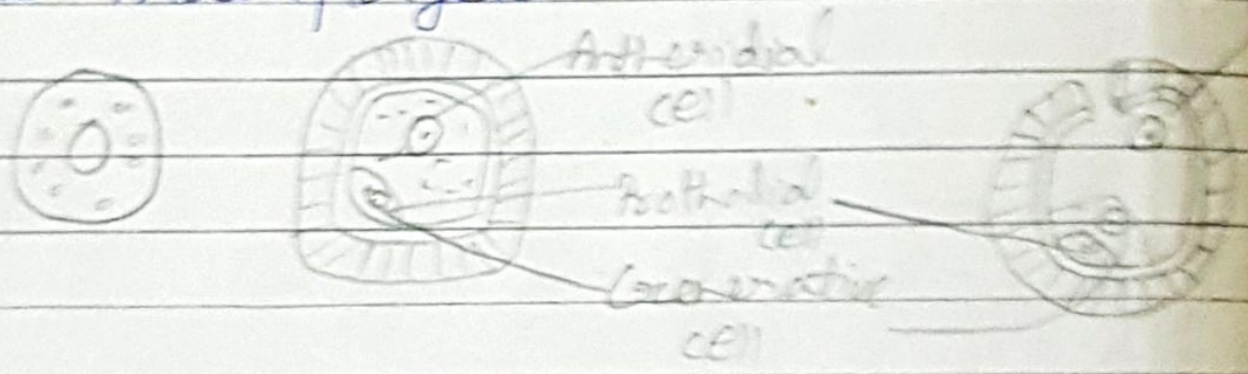 Antheridial
cell
Prothalial
cell
Generative
cell